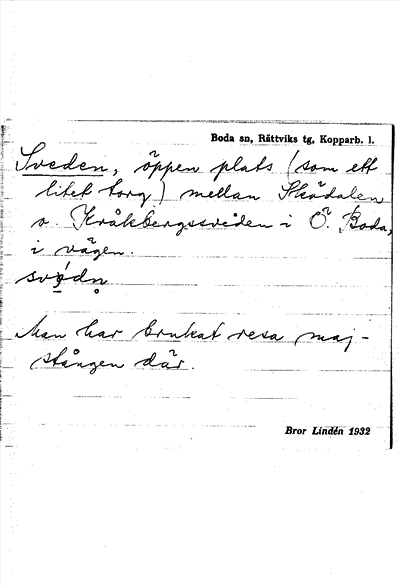 Boda sn, Rättviks tg, Kopparb. l.
Sveden, öppen plats (som ett
litet torg) mellan Skådalen
o. Kråkbergssveden i Ö. Boda,
i vägen.
Man har brukat resa maj-
stången där.
Bror Lindén 1932